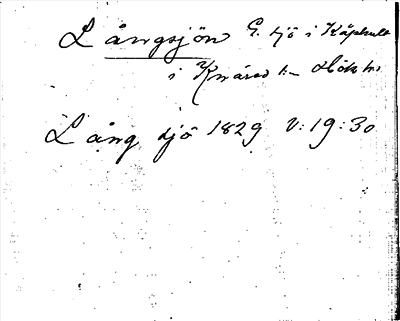 Långsjön G. sjö i Käphult
i Knäred s:n Höks hd
Lång sjö 1829 V:19:30